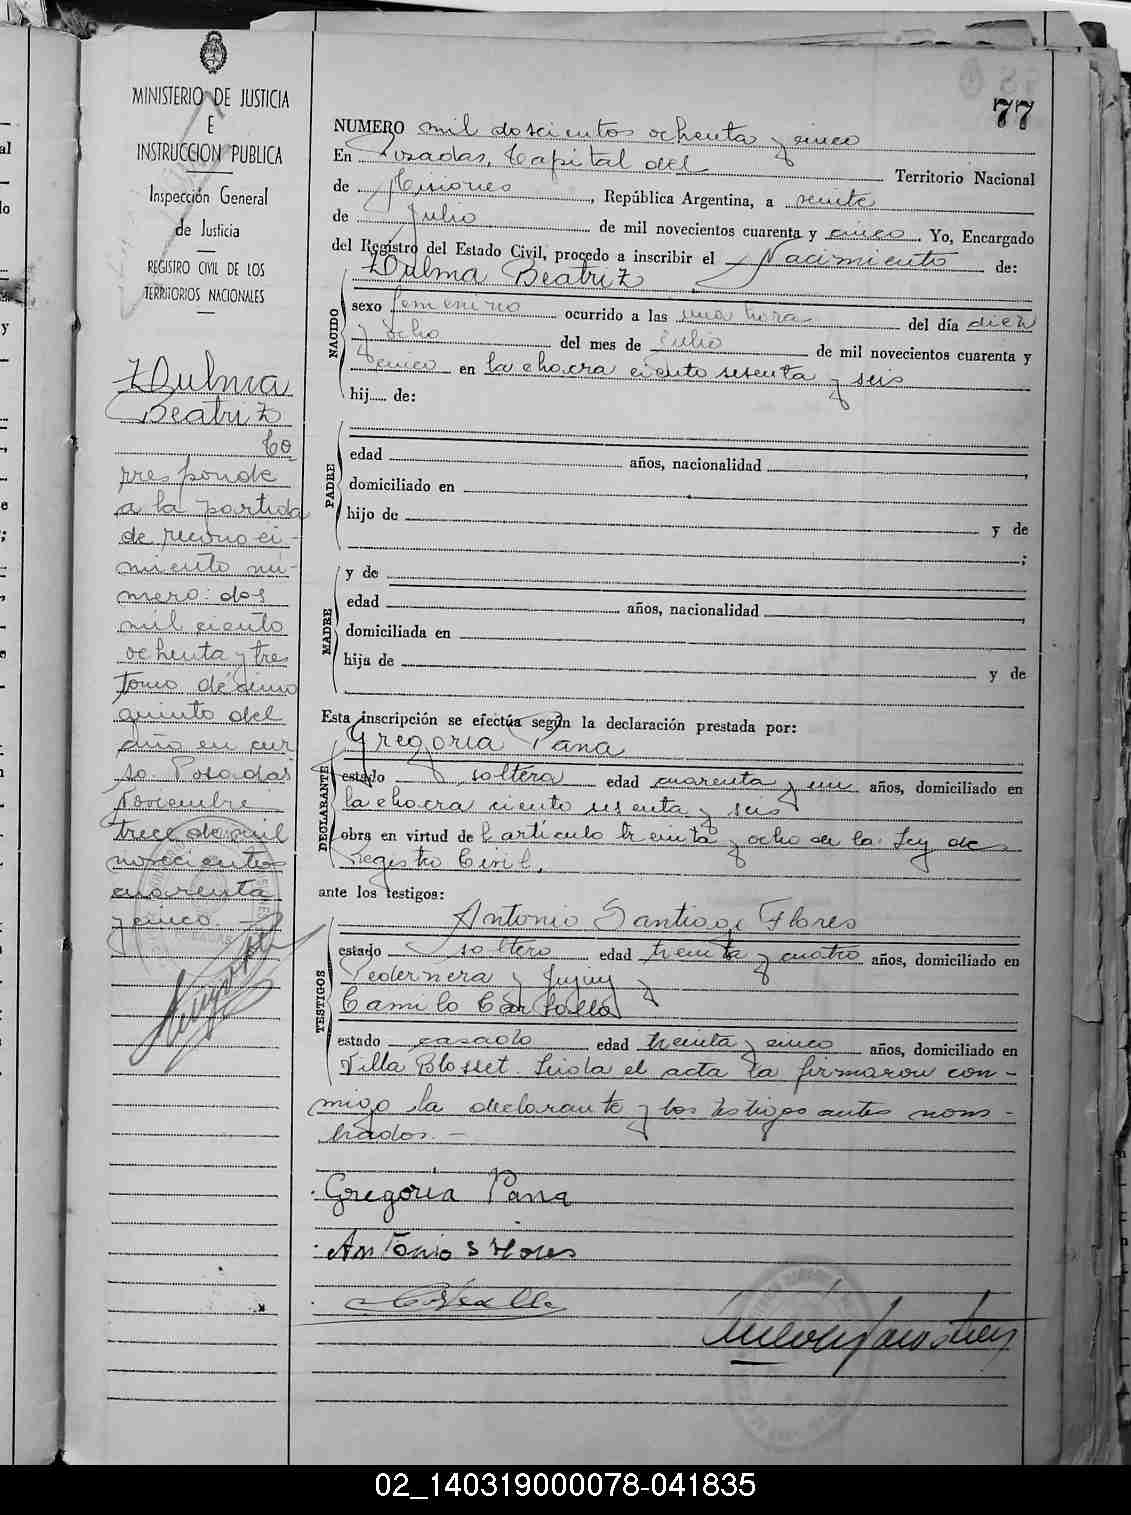 77
MINISTERIO DE JUSTICIA
E
INSTRUCCIÓN PUBLICA
Inspección General
de Justicia
REGISTRO CIVIL DE LOS
TERRITORIOS NACIONALES
Zulma
Beatriz
Co
rresponde
a la partida
de reconoci-
miento nú-
mero: dos
mil ciento
ochenta y tres
tomo décimo
quinto del
año en cur
so. Posadas
Noviembre
trece de mil
novecientos
cuarenta
y cinco.
NUMERO mil doscientos ochenta y cinco
En Posadas, Capital del Territorio Nacional
de Misiones, República Argentina, a veinte
de Julio de mil novecientos cuarenta y cinco. Yo, Encargado
del Registro del Estado Civil, procedo a inscribir el Nacimiento de:
Zulma Beatriz
NACIDO
sexo femenino ocurrido a las una hora del día diez
y ocho del mes de julio de mil novecientos cuarenta y
cinco en la chacra ciento sesenta y seis
hij..... de:
PADRE
edad años, nacionalidad ,
domiciliado en
hijo de y de
;
MADRE
y de
edad años, nacionalidad ,
domiciliada en
hija de y de
Esta inscripción se efectúa según la declaración prestada por:
Gregoria Pana
DECLARANTE
estado soltera edad cuarenta y un años, domiciliado en
la chacra ciento sesenta y seis
obra en virtud de l'artículo treinta y ocho de la Ley de
Registro Civil,
ante los testigos:
Antonio Santiago Flores
TESTIGOS
estado soltero edad treinta y cuatro años, domiciliado en
Pedernera y Jujuy y
Camilo Carballo
estado casado edad treinta y cinco años, domiciliado en
Villa Blosset. Leída el acta la firmaron con-
migo la declarante y los testigos antes nom-
brados.-
Gregoria Pana
Antonio S Flores
02_140319000078-041835